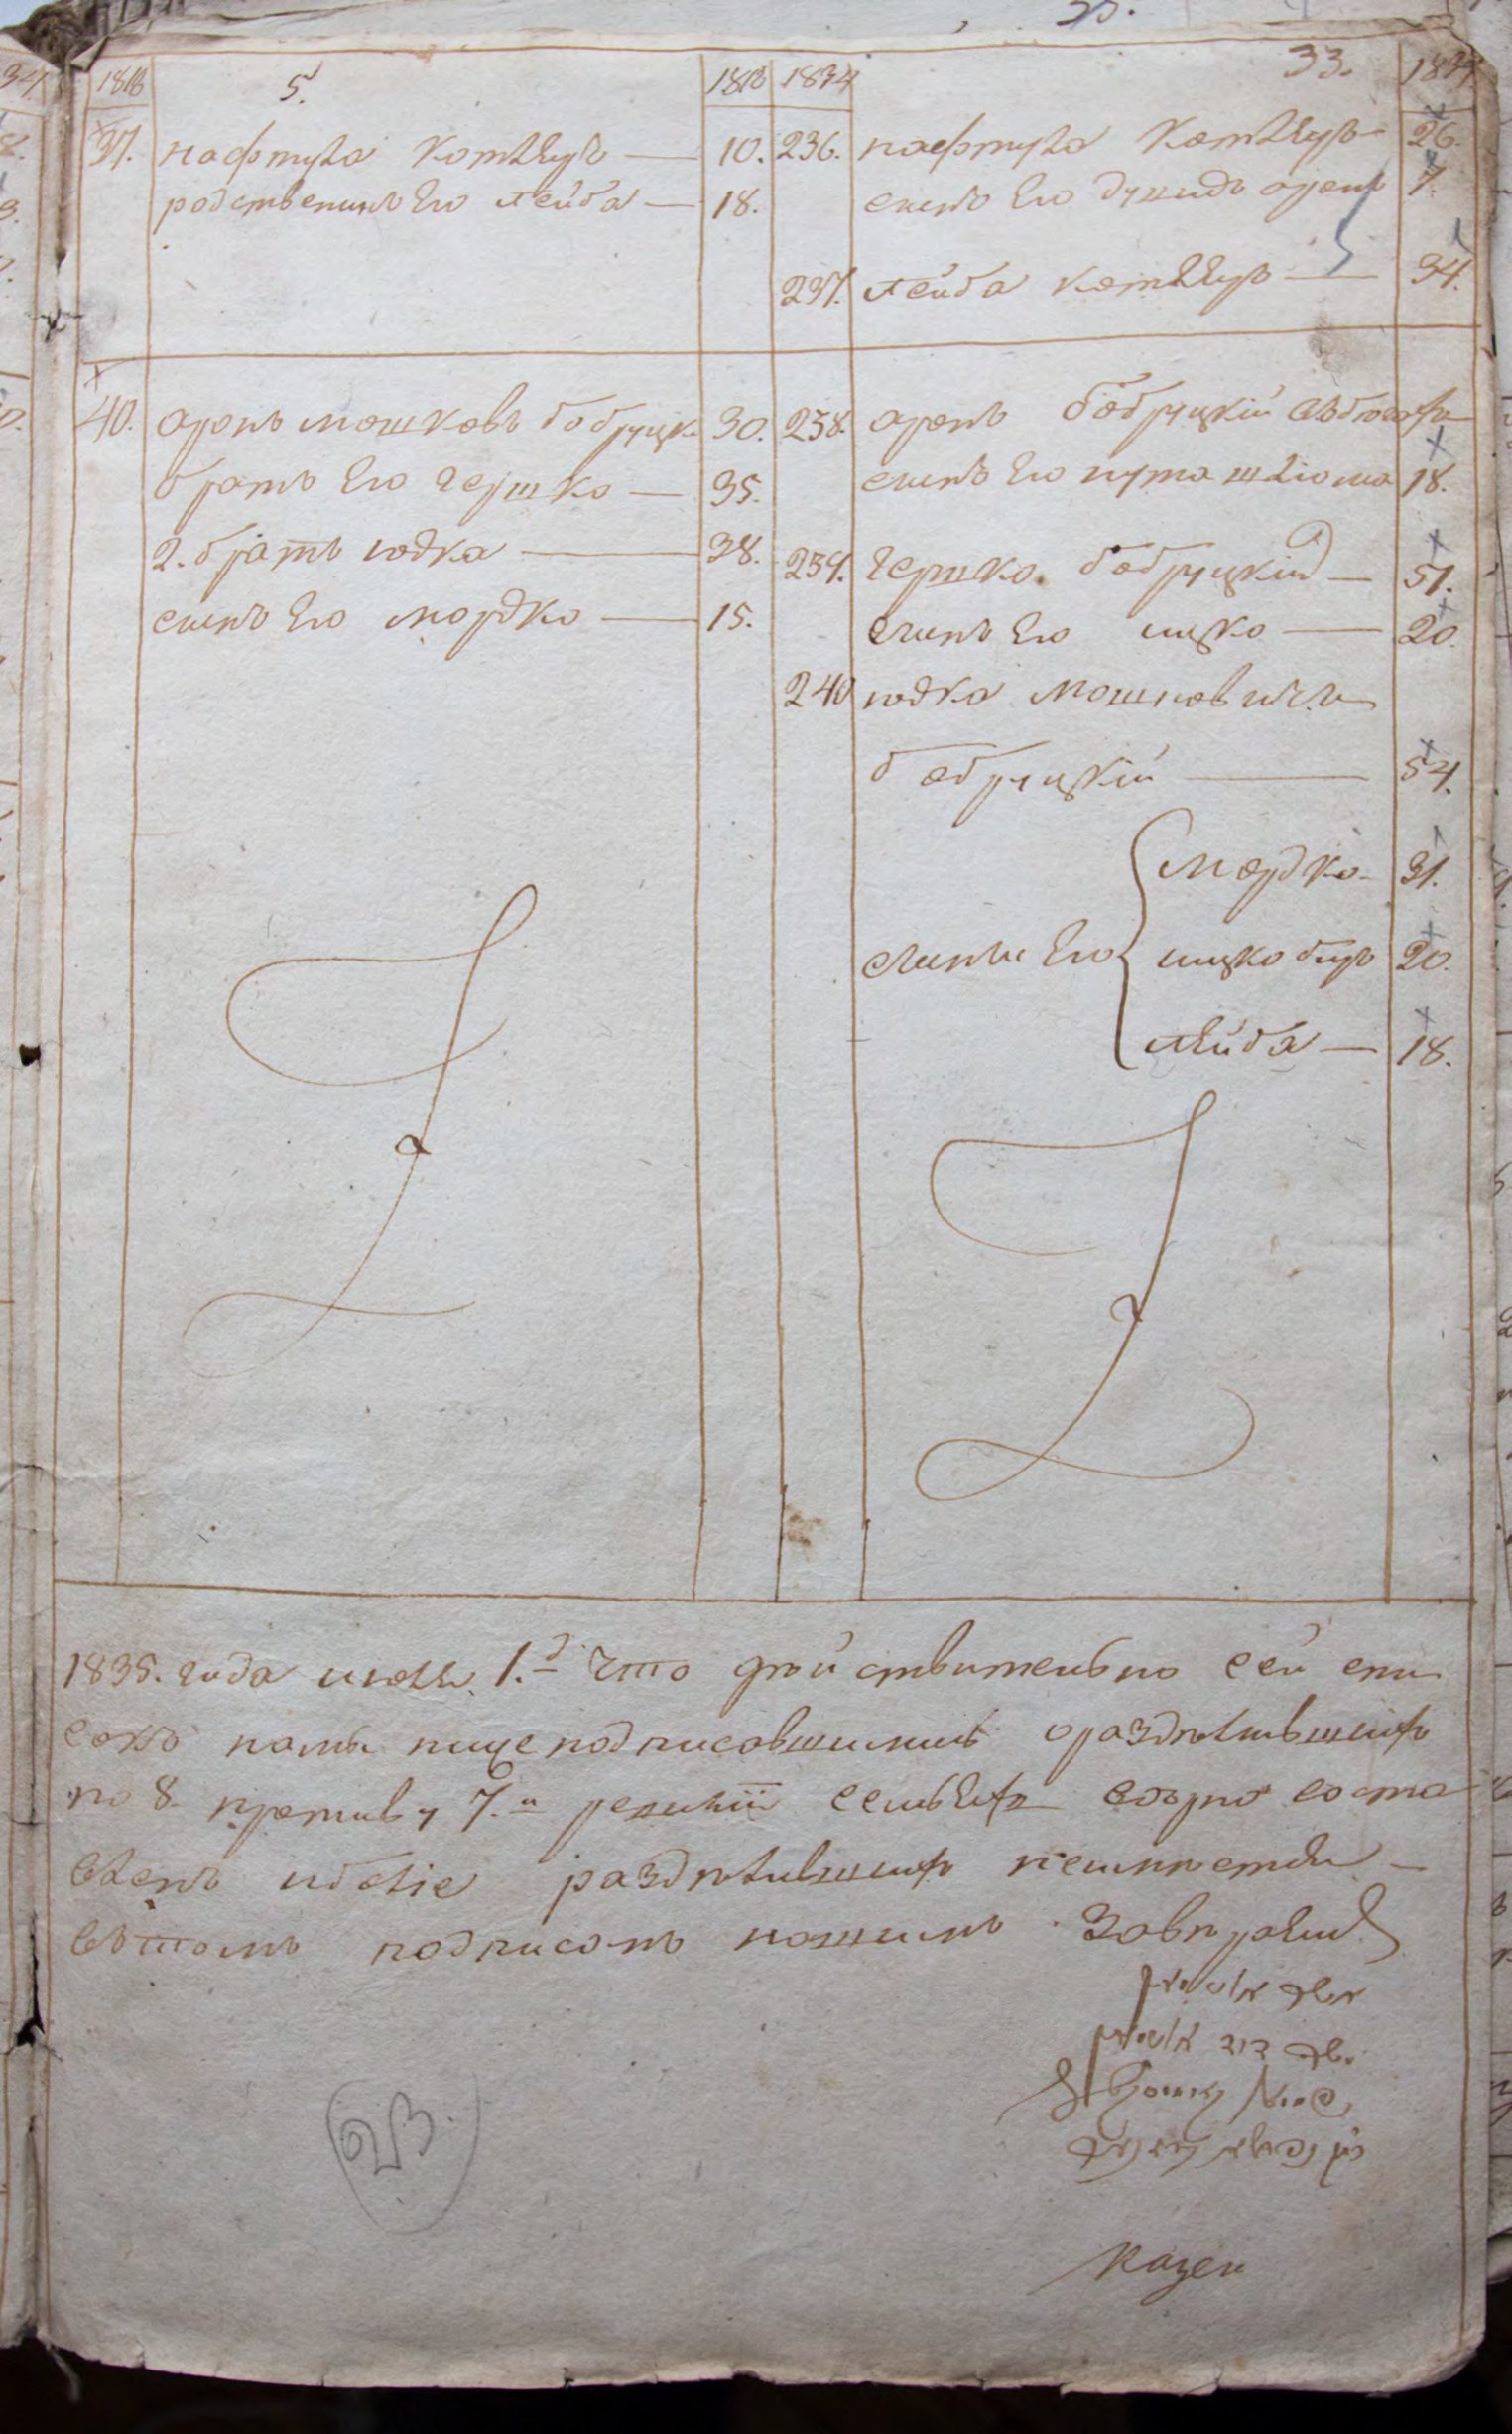 33.
1816 5. 1816 1834 1834
37. нафтула котляръ — 10. 236. нафтула котляръ 26.
родственикъ Его лейба — 18. сынъ Его аронъ 7.
237. лейба котляръ — 34.
40. аронъ мошковъ бобруцк. 30. 238. аронъ бобруцкій
братъ Его гершко — 35. сынъ Его нута шліома 18.
2. братъ юдка — 38. 239. гершко бобруцкій — 51.
сынъ Его мордко — 15. сынъ Его ицко — 20.
240 юдка мошковичъ
бобруцкій — 54.
мордко 31.
сыны Его ицко беръ 20.
лейба — 18.
1835. года июля 1.д что действительно сей спи
сокъ нами нищеподписавшимись о разделившихъ
по 8. противу 7.й ревизіи семьяхъ верно соста
вленъ иболіе разделившихъ неимеется —
втомъ подписомъ нашимъ Заверяемъ
23.